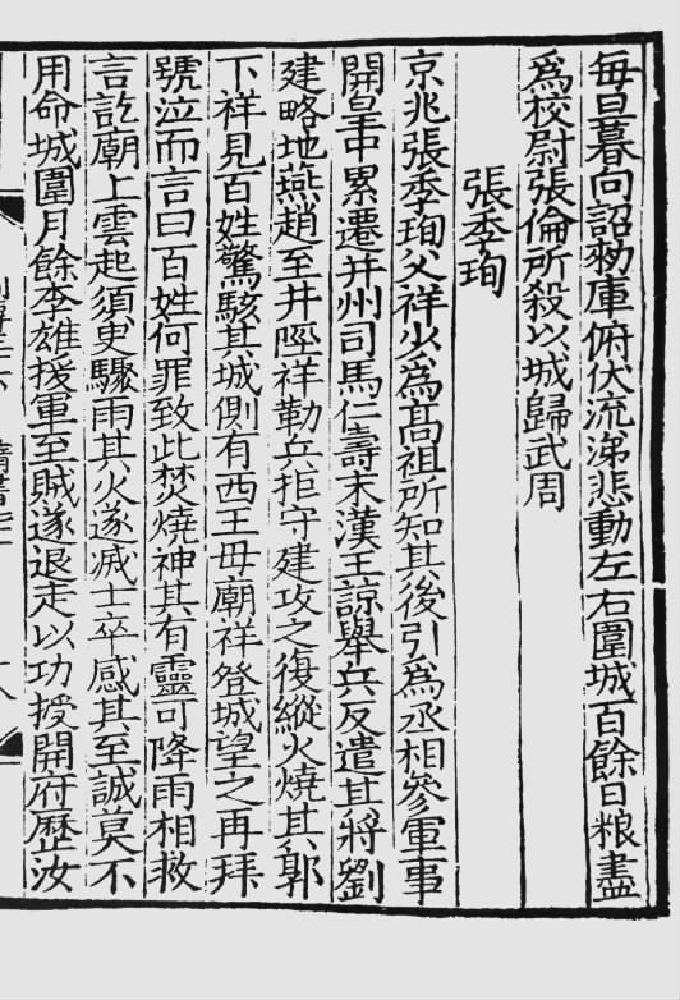 每旦暮向詔勑庫俯伏流涕悲動左右圍城百餘日粮盡
爲校尉張倫所殺以城歸武周
張季珣
京兆張季珣父祥少爲髙祖所知其後引爲丞相參軍事
開皇中累遷并州司馬仁壽末漢王諒舉兵反遣其將劉
建略地燕趙至井陘祥勒兵拒守建攻之復縱火燒其郭
下祥見百姓驚駭其城側有西王毋廟祥登城望之再拜
號泣而言曰百姓何罪致此焚燒神其有靈可降雨相救
言訖廟上雲起須臾驟雨其火遂滅士卒感其至誠莫不
用命城圍月餘李雄援軍至賊遂退走以功授開府歷汝